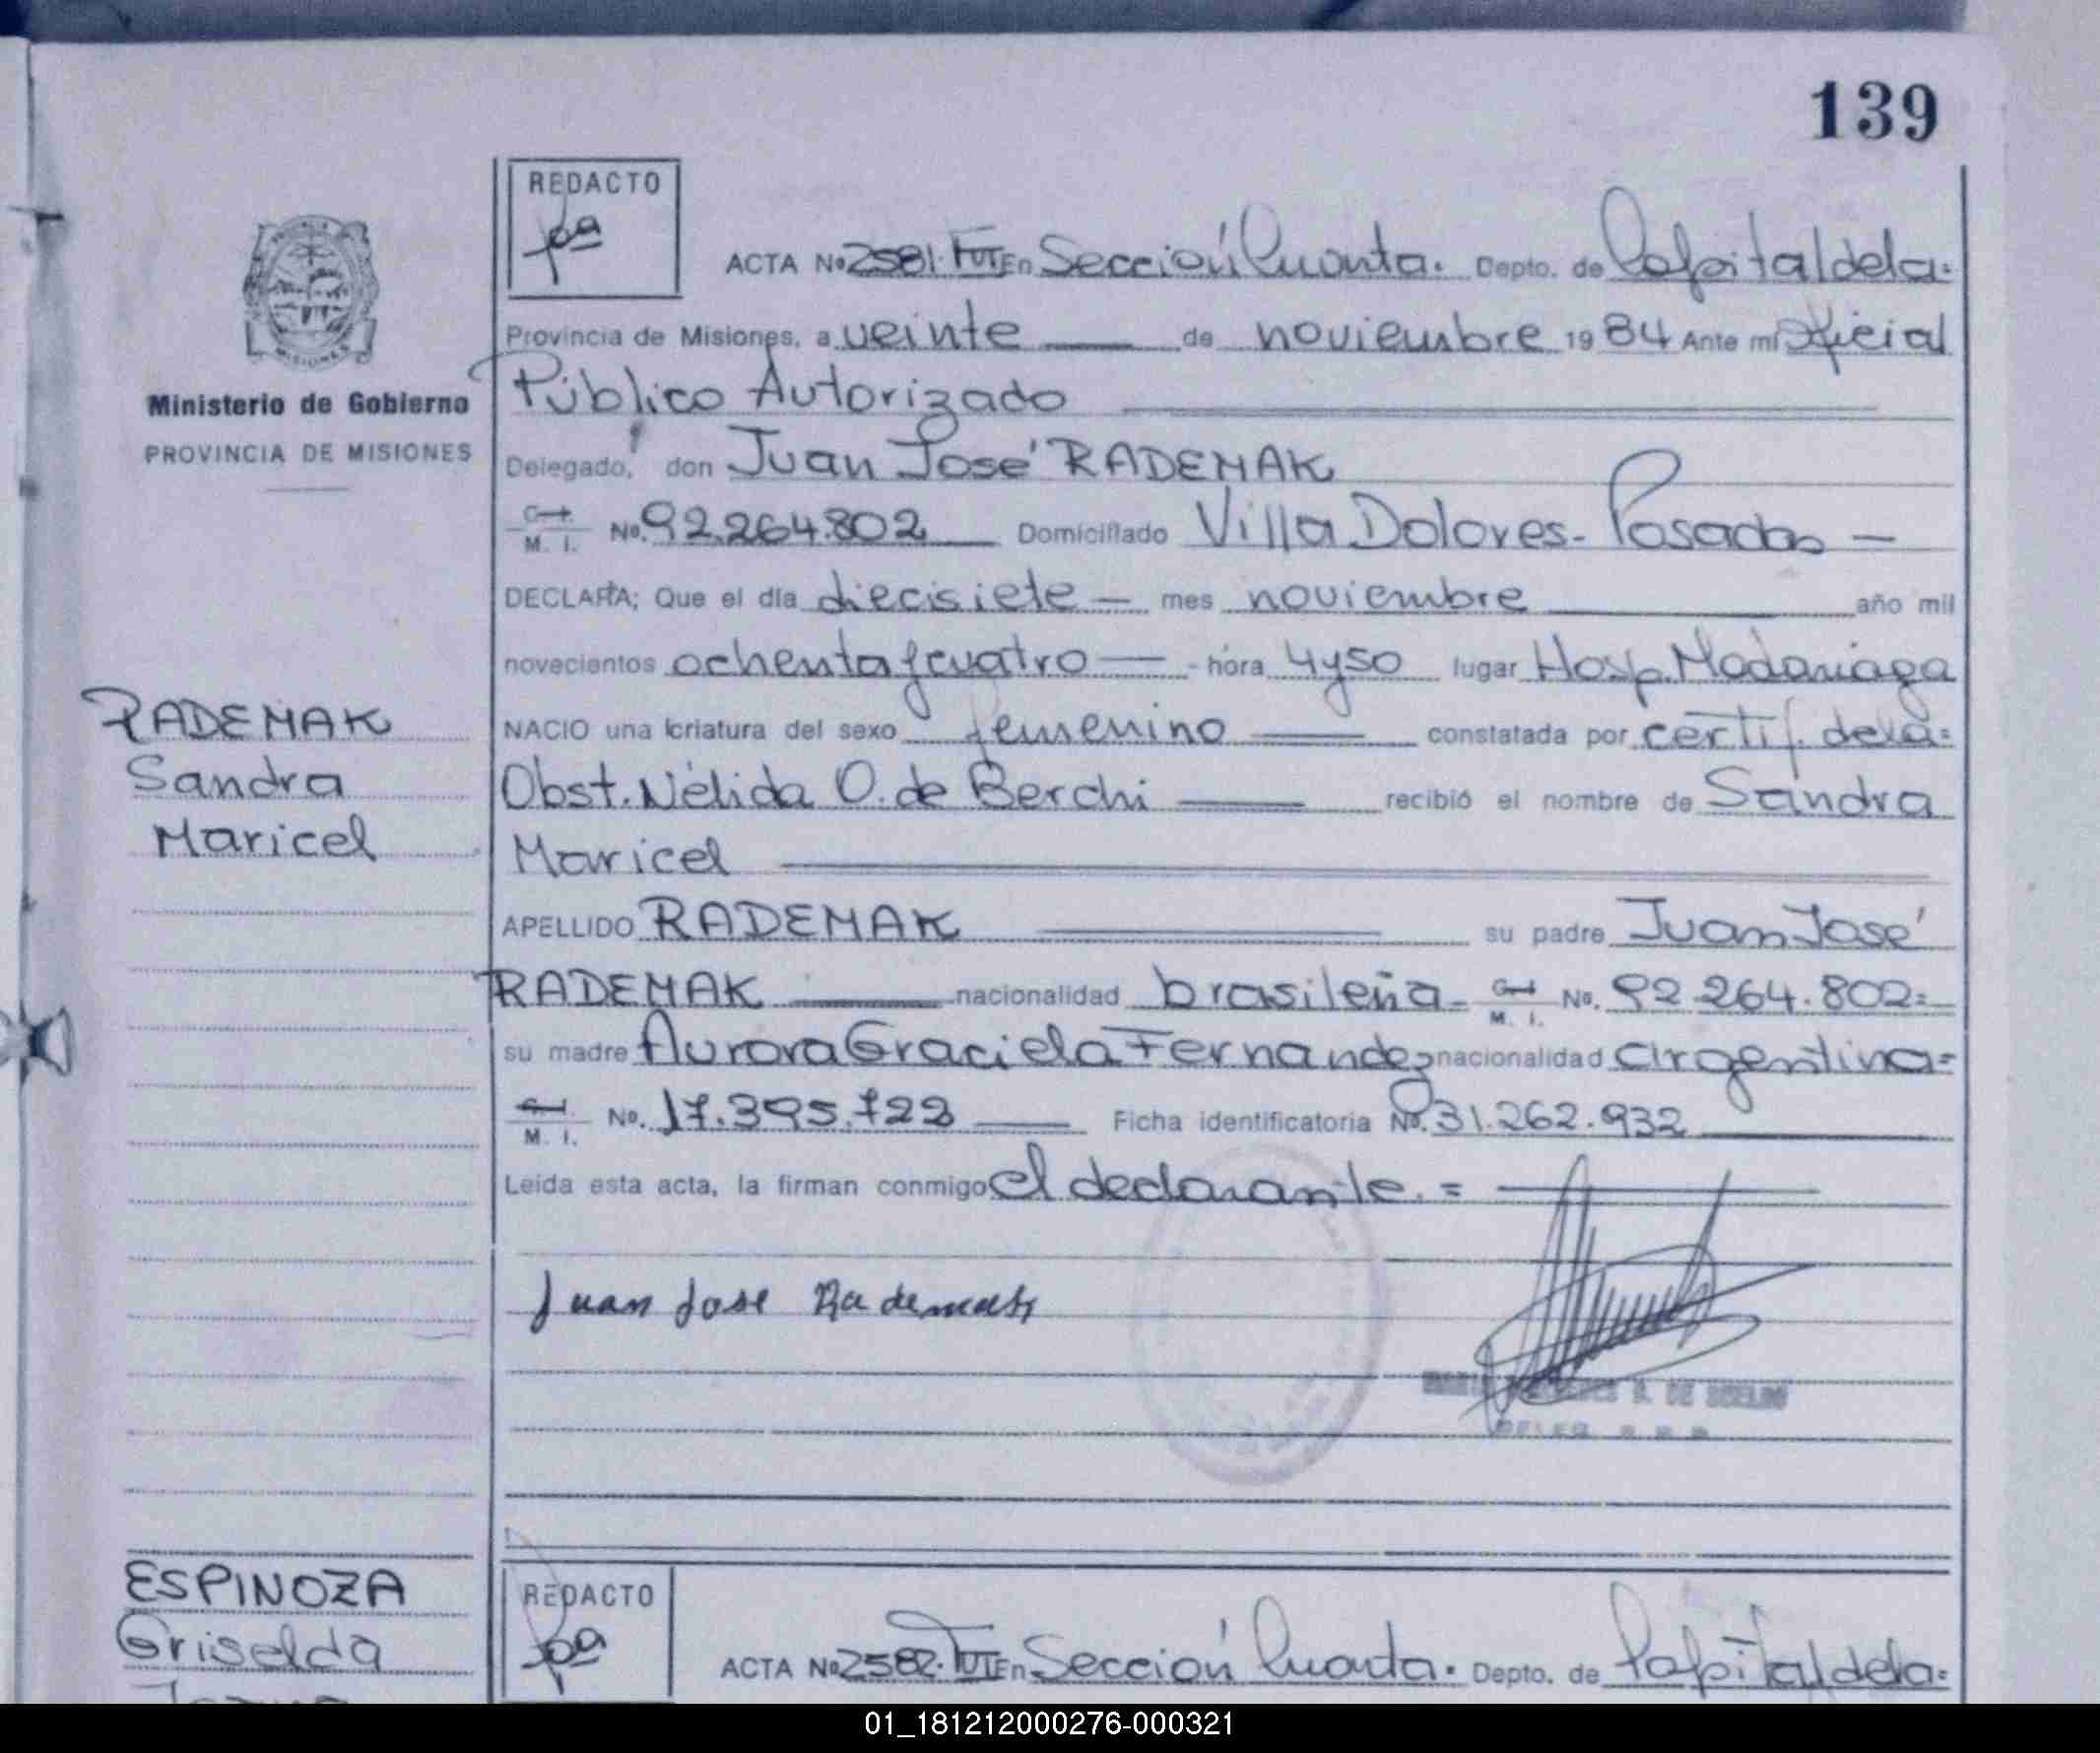 139
REDACTO
ACTA Nº 2581. TºVI En Sección Cuarta. Depto. de Capital de la.
Provincia de Misiones, a veinte de noviembre 1984 Ante mí Oficial
Ministerio de Gobierno
Público Autorizado
PROVINCIA DE MISIONES
Delegado, don Juan José RADEMAK
C. I.
M. I. Nº. 92.264.802 Domiciliado Villa Dolores - Posadas -
DECLARA; Que el día diecisiete - mes noviembre año mil
novecientos ochenta y cuatro - hora 4 y 50 lugar Hosp. Madariaga
RADEMAK
NACIO una criatura del sexo femenino constatada por certif. de la =
Sandra
Obst. Nélida O. de Berchi recibió el nombre de Sandra
Maricel
Maricel
APELLIDO RADEMAK su padre Juan José
RADEMAK nacionalidad brasileña - C. I. M. I. Nº. 92.264.802 =
su madre Aurora Graciela Fernandez nacionalidad argentina =
C. I.
M. I. Nº. 17.395.722 Ficha identificatoria Nº. 31.262.932
Leída esta acta, la firman conmigo el declarante. =
Juan Jose Rademak
ESPINOZA
REDACTO
Griselda
ACTA Nº 2582. En Sección Cuarta. Depto. de Capital de la =
01_181212000276-000321